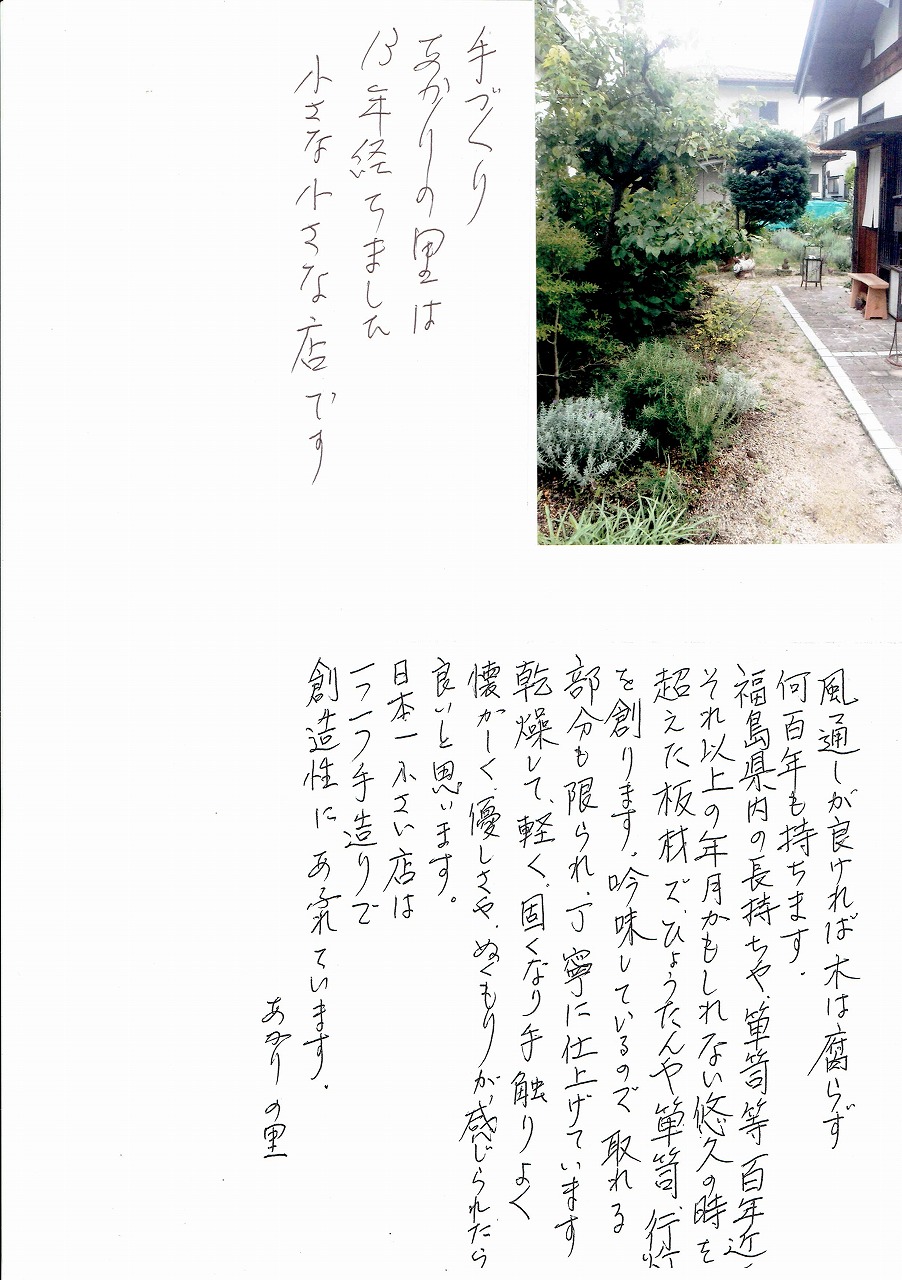 手づくり
あかりの里は
13年経ちました
小さな小さな店です
風通しが良ければ木は腐らず
何百年も持ちます。
福島県内の長持ちや、箪笥等百年近
それ以上の年月かもしれない悠久の時を
超えた板材で、ひょうたんや箪笥、行灯
を創ります。吟味しているので取れる
部分も限られ、丁寧に仕上げています
乾燥して、軽く、固くなり手触りよく
懐かしく、優しさや、ぬくもりが感じられたら
良いと思います。
日本一小さい店は
一つ一つ手造りで
創造性にあふれています。
あかりの里